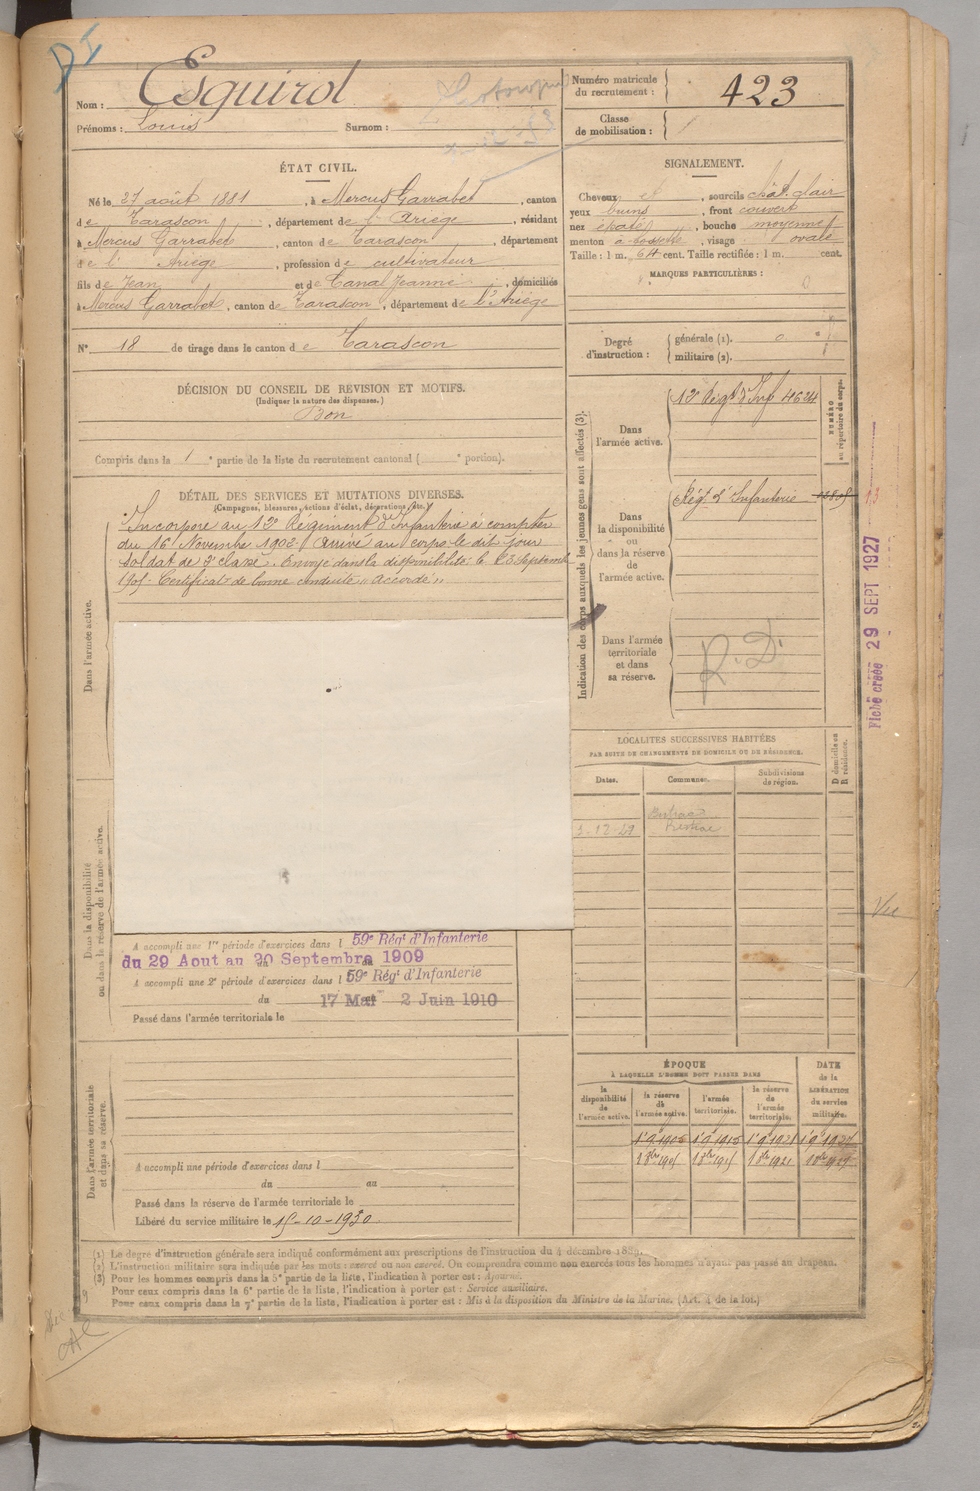 DI
Nom : Esquirol
Prénoms : Louis Surnom :
Numéro matricule du recrutement : 423
Classe de mobilisation :
ÉTAT CIVIL.
Né le 27 août 1881, à Mercus Garrabet, canton
de Tarascon, département de l'Ariège, résidant
à Mercus Garrabet, canton de Tarascon, département
de l' Ariège, profession de cultivateur
fils de Jean et de Canal Jeanne, domiciliés
à Mercus Garrabet, canton de Tarascon, département de l'Ariège
N° 18 de tirage dans le canton de Tarascon
DÉCISION DU CONSEIL DE RÉVISION ET MOTIFS.
(Indiquer la nature des dispenses.)
Bon
Compris dans la 1e partie de la liste du recrutement cantonal ( e portion).
SIGNALEMENT.
Cheveux et, sourcils chât. clair
yeux bruns, front couvert
nez épaté, bouche moyenne
menton à fossette, visage ovale
Taille : 1 m. 64 cent. Taille rectifiée : 1 m. cent.
MARQUES PARTICULIÈRES :
Degré d'instruction :
générale (1). 0
militaire (2).
DÉTAIL DES SERVICES ET MUTATIONS DIVERSES.
(Campagnes, blessures, actions d'éclat, décorations, etc.)
Dans l'armée active.
Incorporé au 12e Régiment d'Infanterie à compter
du 16 Novembre 1902. Arrivé au corps le dit jour
soldat de 2e classe. Envoyé dans la disponibilité le 23 Septembre
1905. Certificat de bonne conduite "Accordé".
Indication des corps auxquels les jeunes gens sont affectés (3).
NUMÉRO au répertoire du corps.
Dans l'armée active.
12e Régt d'Inf 4624
Dans la disponibilité ou dans la réserve de l'armée active.
Régt d'Infanterie
Dans l'armée territoriale et dans sa réserve.
R. D.
Fiche créée 29 SEPT 1927
LOCALITÉS SUCCESSIVES HABITÉES
PAR SUITE DE CHANGEMENTS DE DOMICILE OU DE RÉSIDENCE.
Dates. Communes. Subdivisions de région. D domicile ou R résidence.
Vu
Dans la disponibilité
ou dans la réserve de l'armée active.
A accompli une 1re période d'exercices dans l 59e Régt d'Infanterie
du 29 Aout au 20 Septembre 1909
A accompli une 2e période d'exercices dans l 59e Régt d'Infanterie
du 17 Mai au 2 Juin 1910
Passé dans l'armée territoriale le
Dans l'armée territoriale
et dans sa réserve.
A accompli une période d'exercices dans l
du au
Passé dans la réserve de l'armée territoriale le
Libéré du service militaire le 15-10-1930
ÉPOQUE
À LAQUELLE L'HOMME DOIT PASSER DANS
DATE de la LIBÉRATION du service militaire.
la disponibilité de l'armée active. la réserve de l'armée active. l'armée territoriale. la réserve de l'armée territoriale.
(1) Le degré d'instruction générale sera indiqué conformément aux prescriptions de l'instruction du 4 décembre 1889.
(2) L'instruction militaire sera indiquée par les mots : exercé ou non exercé. On comprendra comme non exercés tous les hommes n'ayant pas passé au drapeau.
(3) Pour les hommes compris dans la 5e partie de la liste, l'indication à porter est : Ajourné.
Pour ceux compris dans la 6e partie de la liste, l'indication à porter est : Service auxiliaire.
Pour ceux compris dans la 7e partie de la liste, l'indication à porter est : Mis à la disposition du Ministre de la Marine. (Art. 4 de la loi.)